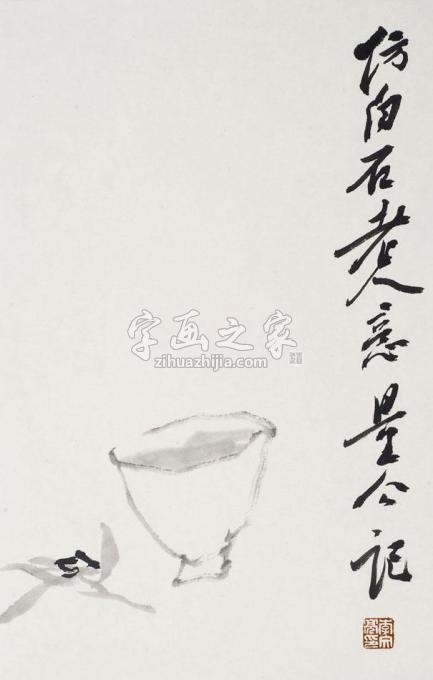 仿白石老人意 量公记
字画之家
zihuazhijia.com